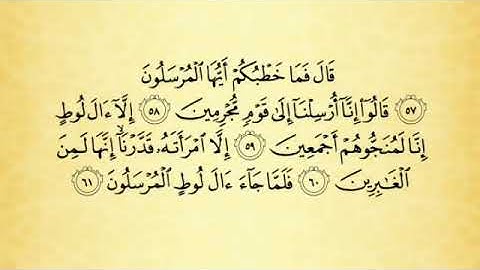 قَالَ فَمَا خَطْبُكُمْ أَيُّهَا ٱلْمُرْسَلُونَ
۝٥٧ قَالُوٓا۟ إِنَّآ أُرْسِلْنَآ إِلَىٰ قَوْمٍ مُّجْرِمِينَ ۝٥٨ إِلَّآ ءَالَ لُوطٍ
إِنَّا لَمُنَجُّوهُمْ أَجْمَعِينَ ۝٥٩ إِلَّا ٱمْرَأَتَهُۥ قَدَّرْنَآ ۙ إِنَّهَا لَمِنَ
ٱلْغَٰبِرِينَ ۝٦٠ فَلَمَّا جَآءَ ءَالَ لُوطٍ ٱلْمُرْسَلُونَ ۝٦١